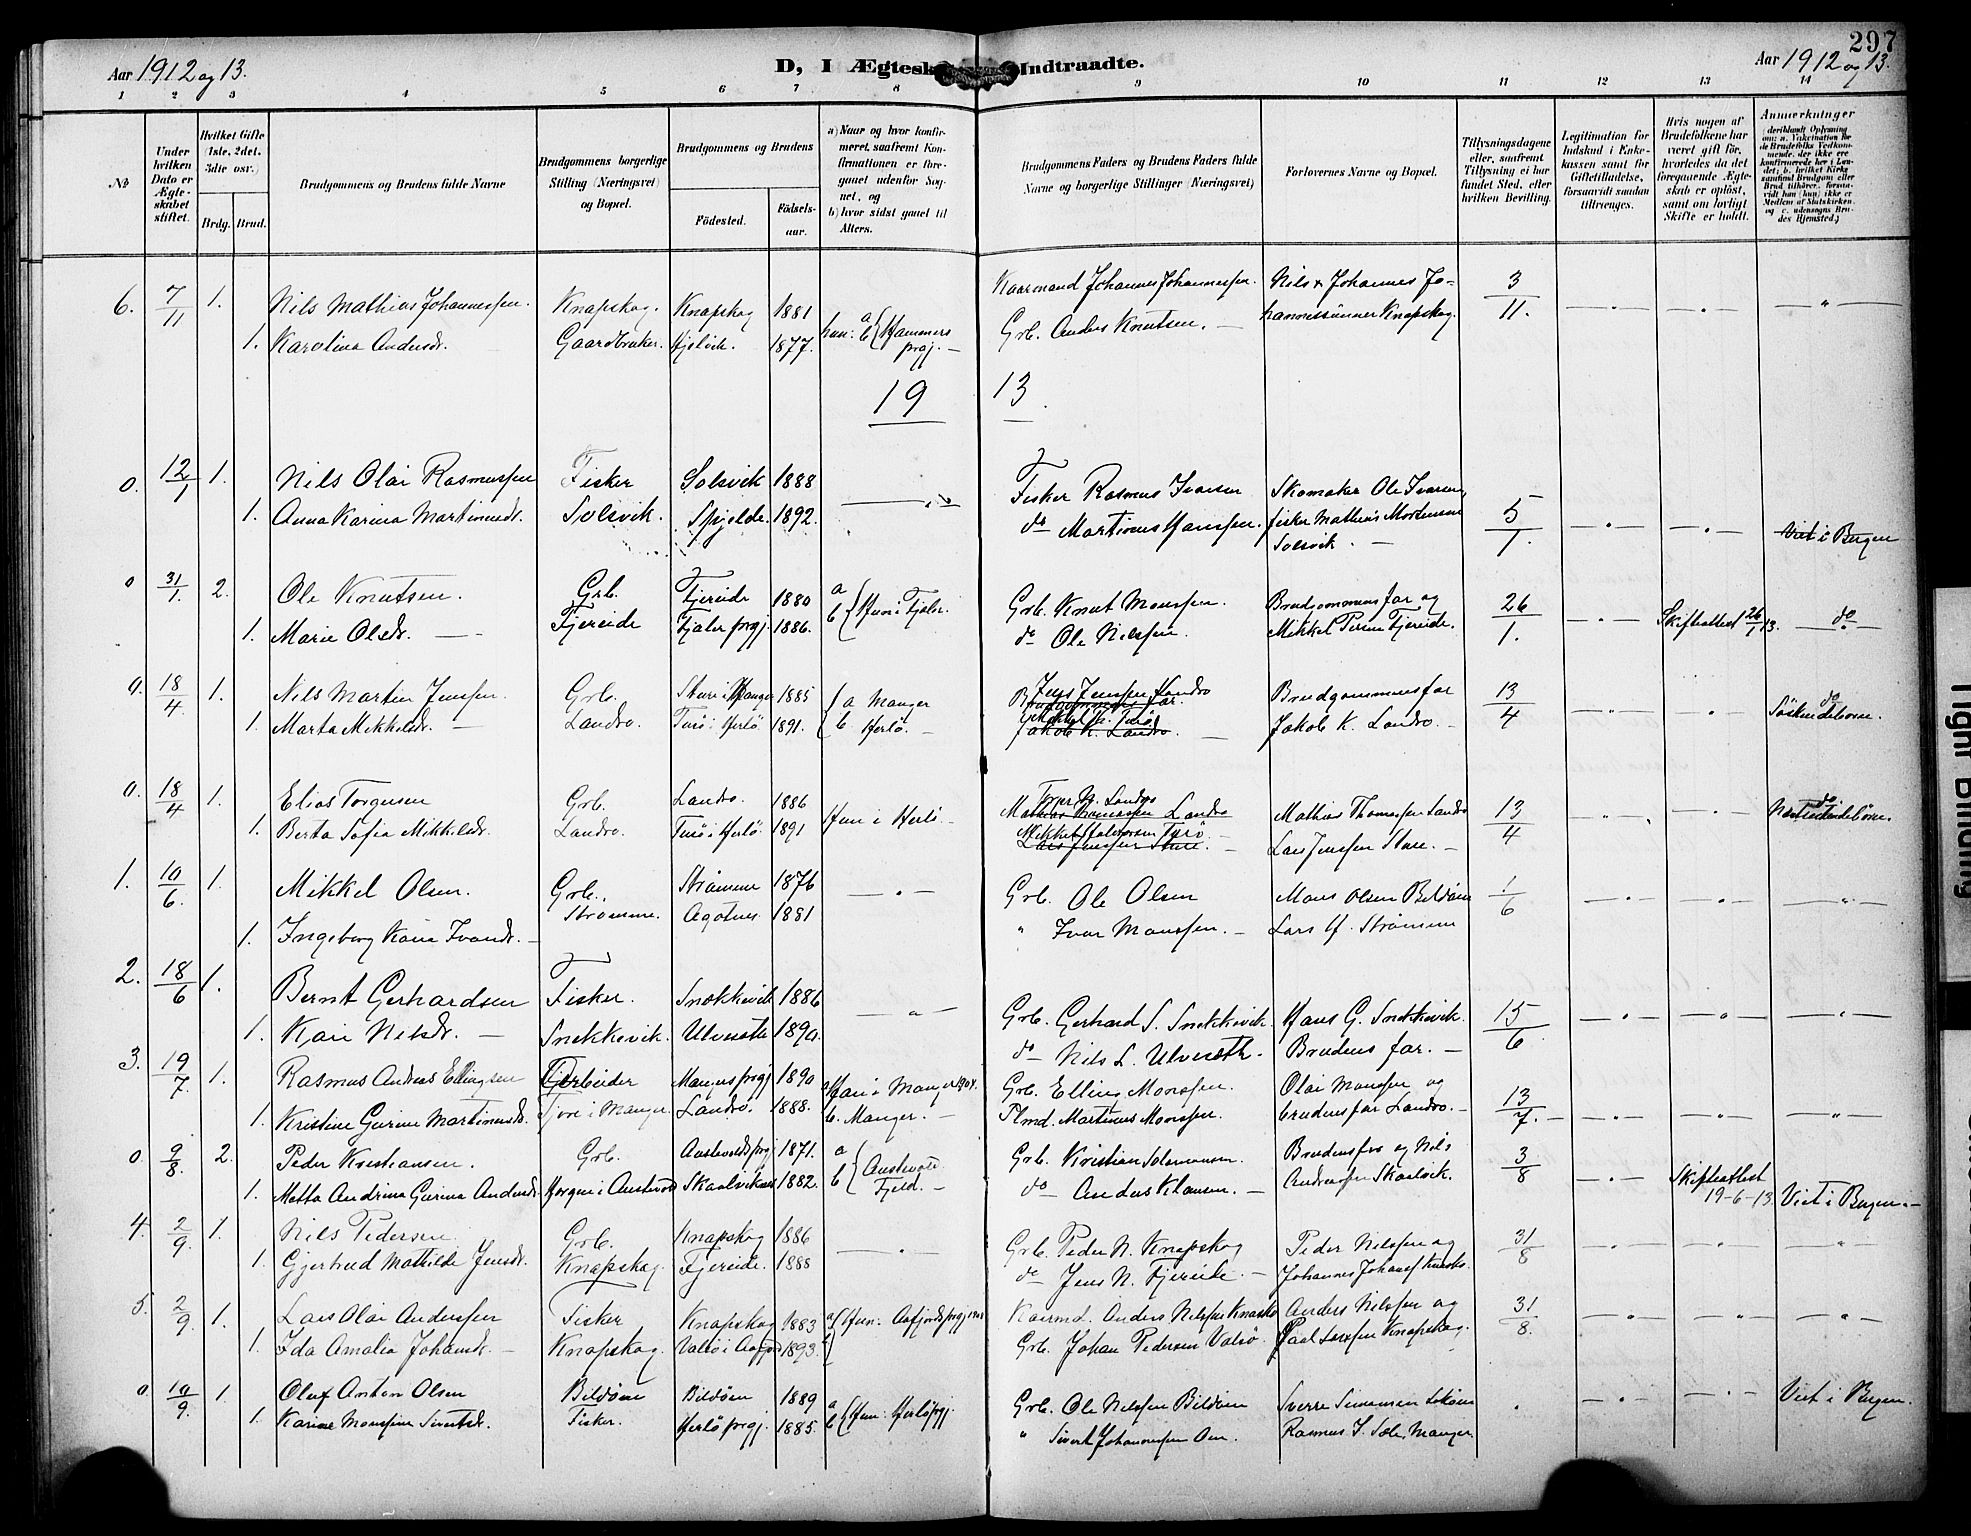 297
Aar 1912 og 13.
D, I Ægtesk Indtraadte.
Aar 1912 og 13.
1 2 3 4 5 6 7 8 9 10 11 12 13 14
No
Under hvilken Dato er Ægteskabet stiftet.
Hvilket Gifte (1ste, 2det, 3die osv.)
Brdg. Brud.
Brudgommens og Brudens fulde Navne
Brudgommens borgerlige Stilling (Næringsvei) og Bopæl.
Brudgommens og Brudens
Födested.
Födsels-aar.
a) Naar og hvor konfirmeret, saafremt Konfirmationen er foregaaet udenfor Sognet, og
b) hvor sidst gaaet til Alters.
Brudgommens Faders og Brudens Faders fulde Navne og borgerlige Stillinger (Næringsvei)
Forlovernes Navne og Bopæl.
Tillysningsdagene eller, saafremt Tillysning ei har fundet Sted, efter hvilken Bevilling.
Legitimation for Indskud i Enkekassen samt for Giftetilladelse, forsaavidt saadan tiltrænges.
Hvis nogen af Brudefolkene har været gift för, hvorledes da det foregaaende Ægteskab er oplöst, samt om lovligt Skifte er holdt.
Anmerkninger
6. 7/11 1. Nils Mathias Johannessen. Knapskog. Knapskog 1881 Kaarmand Johannes Johannessen. Nils & Johannes Jo- 3/11.
1. Karolina Andersdr. Gaardbruker. Hjelvik. 1877. hun: a b Hammers prgj. Grb. Anders Knutsen. hannessønner Knapskog.
19 13
0. 12/1 1. Nils Olai Rasmussen Fisker Solsvik 1888 Fisker Rasmus Ivarsen Skomaker Ole Ivarsen, 5/1.
1. Anna Karina Martinusdr. Solsvik. Spjelde. 1892. do Martinus Hanssen. fisker Mathias Mortensen Solsvik Viet i Bergen
0 31/1. 2. Ole Knutsen. Grb. Fjereide 1880 a Grb. Knut Monssen. Brudgommens far og 26/1. Skifteattest 26/1 13. do
1. Marie Olsdr. Fjereide Fjaler prgj. 1886. b Hun i Fjaler. do Ole Nilssen. Mikkel Fjereide.
0. 18/4 1. Nils Martin Jenssen. Grb. Sture i Manger 1885 a Manger Jens Jenssen Landro Brudgommens far 13/4 do
1. Marta Mikkelsdr. Landro. Turö i Herlö 1891. b Herlö. Jakob K. Landro. Jakob K. Landro. Söskendebörn.
0. 18/4 1. Elias Torgersen Grb. Landro. 1886 Landro Mathias Thomassen Landro 13/4 do
1. Berta Sofia Mikkelsdr. Landro. Turö i Herlö 1891 Hun i Herlö. Mikkel Halvorsen Turö. Lars Jenssen Sture. Lars Jenssen Sture.
1. 10/6. 1. Mikkel Olsen. Grb. Strömme 1876 Grb. Ole Olsen Mons Olsen Bildöen 1/6
1. Ingeborg Karia Ivarsdr. Strömme. Agotnes 1881 " Ivar Monssen. Lars Strömme
2. 18/6 1. Bernt Gerhardsen Fisker. Snekkevik 1886 Grb. Gerhard S. Snekkevik. Hans G. Snekkevik. 15/6
1. Kari Nilsdr. Snekkevik. Ulveseth 1890. do Nils L. Ulveseth. Brudens far.
3. 19/7 1. Rasmus Andreas Ellingsen Manger prgj 1890 a Han i Manger Grb. Elling Monssen. Olai Monssen og 13/7.
1. Kristine Gurine Martinusdr. i Manger. Landro. 1888. b. Manger. Martinus Monssen. brudens far Landro.
0. 9/8. 2. Peder Kristiansen. Grb. Austevolds prgj 1871. a Austevold Grb. Kristian Salamonsen. og Nils 3/8 Skifteattest
1. Metta Andrina Gurina Andersdr. i Austevold Skaalviknes 1882. b Fjeld. do Anders Klausen. Anderssen Skaalvik. 19-6-13. Viet i Bergen.
4. 2/9. 1. Nils Pedersen Grb. Knapskog 1886 Grb. Peder N. Knapskog Peder Nilssen og 31/8
1. Gjertrud Mathilde Jensdr. Knapskog. Fjereide. 1888 do Jens N. Fjereide. Johannes
5. 2/9. 1. Lars Olai Anderssen Fisker Knapskog 1883 a Hun: Aafjords prgj Kaarmd. Anders Nilssen Anders Nilssen og 31/8.
1. Ida Amalia Johansdr. Knapskog. Valsö i Aafjord 1893. b Grb. Johan Pedersen Valsö. Knapskog.
0. 10/9. 1. Oluf Anton Olsen Bildöen Bildöen 1889 a Grb. Ole Nilssen Bildöen Sverre Simensen Viet i Bergen.
1. Karine Monsine Sivertsdr. Fisker. Herlö prgj. 1885. b Hun: Herlö prgj. " Sivert Johannessen Oen. Rasmus S. Sæle, Manger.
Tight Binding